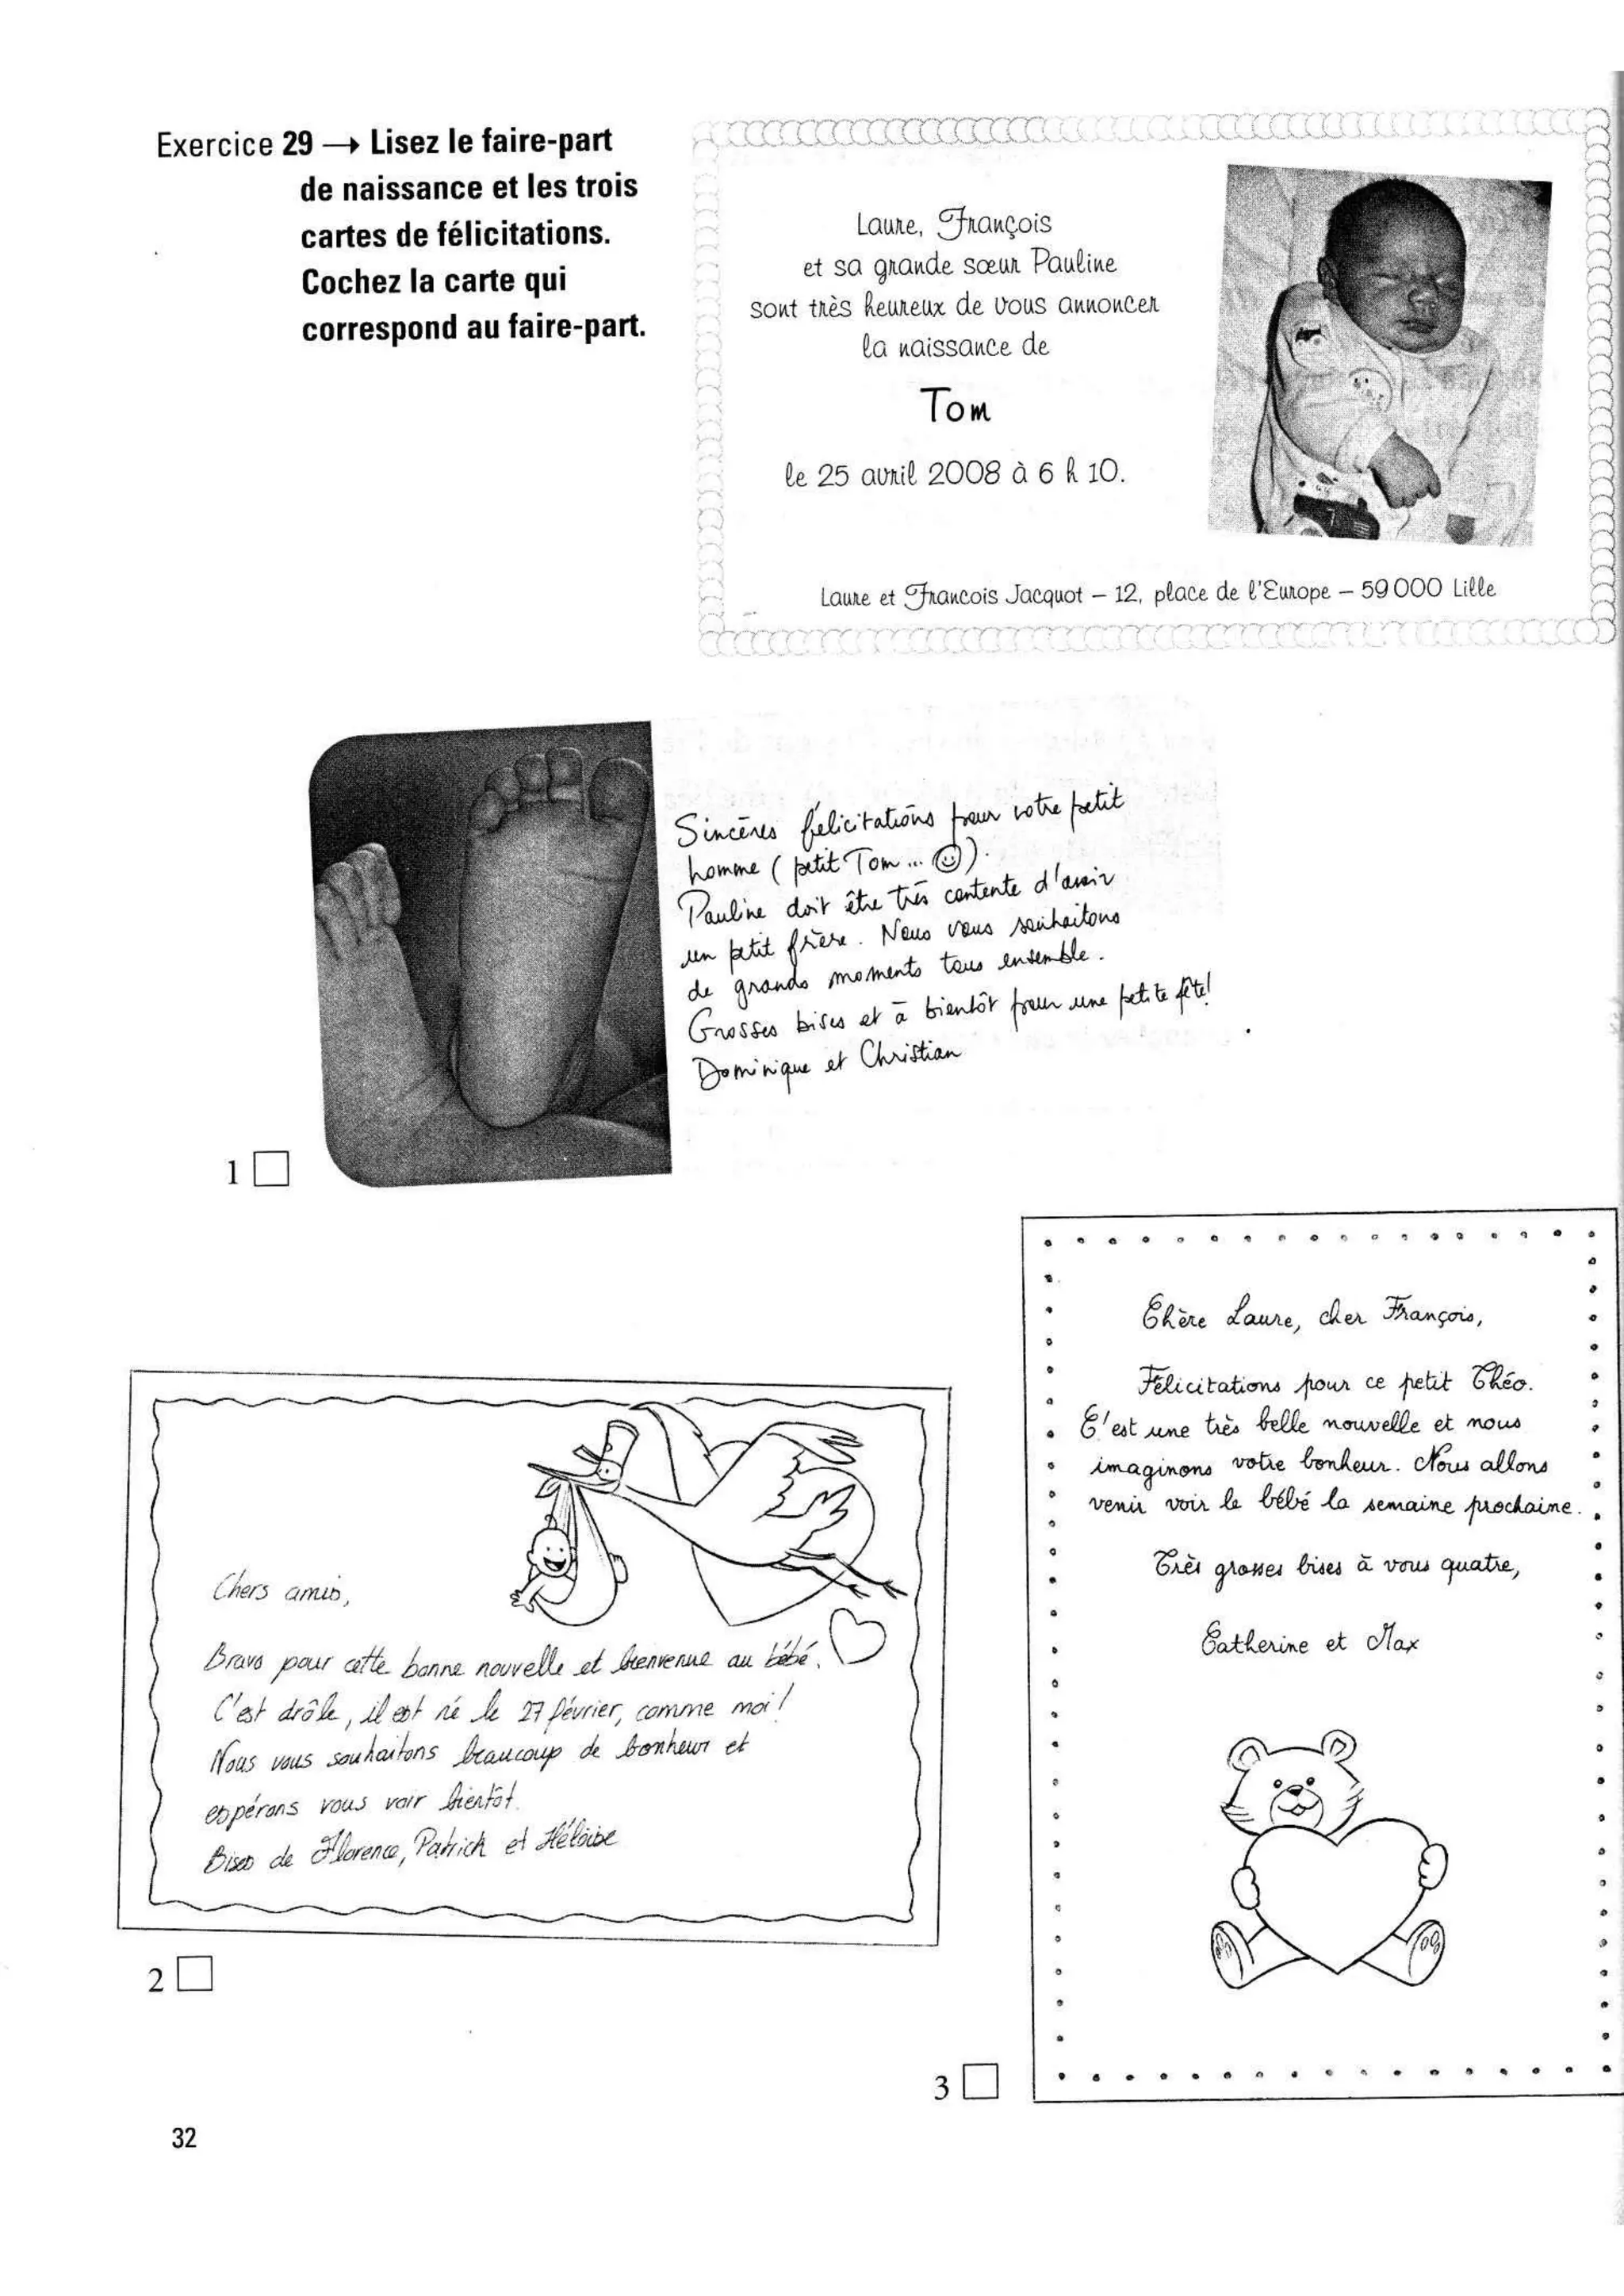 Exercice 29 → Lisez le faire-part
de naissance et les trois
cartes de félicitations.
Cochez la carte qui
correspond au faire-part.
Laure, François
et sa grande sœur Pauline
sont très heureux de vous annoncer
la naissance de
Tom
le 25 avril 2008 à 6 h 10.
Laure et Francois Jacquot – 12, place de l'Europe – 59000 Lille
Sincères félicitations pour votre petit
homme (petit Tom... ☺).
Pauline doit être très contente d'avoir
un petit frère. Nous vous souhaitons
de grands moments tous ensemble.
Grosses bises et à bientôt pour une petite fête!
Dominique et Christian
1 □
Chers amis,
Bravo pour cette bonne nouvelle et bienvenue au bébé.
C'est drôle, il est né le 27 février, comme moi!
Nous vous souhaitons beaucoup de bonheur et
espérons vous voir bientôt.
Bises de Florence, Patrick et Héloïse
2 □
Chère Laure, cher François,
Félicitations pour ce petit Théo.
C'est une très belle nouvelle et nous
imaginons votre bonheur. Nous allons
venir voir le bébé la semaine prochaine.
Très grosses bises à vous quatre,
Catherine et Max
3 □
32